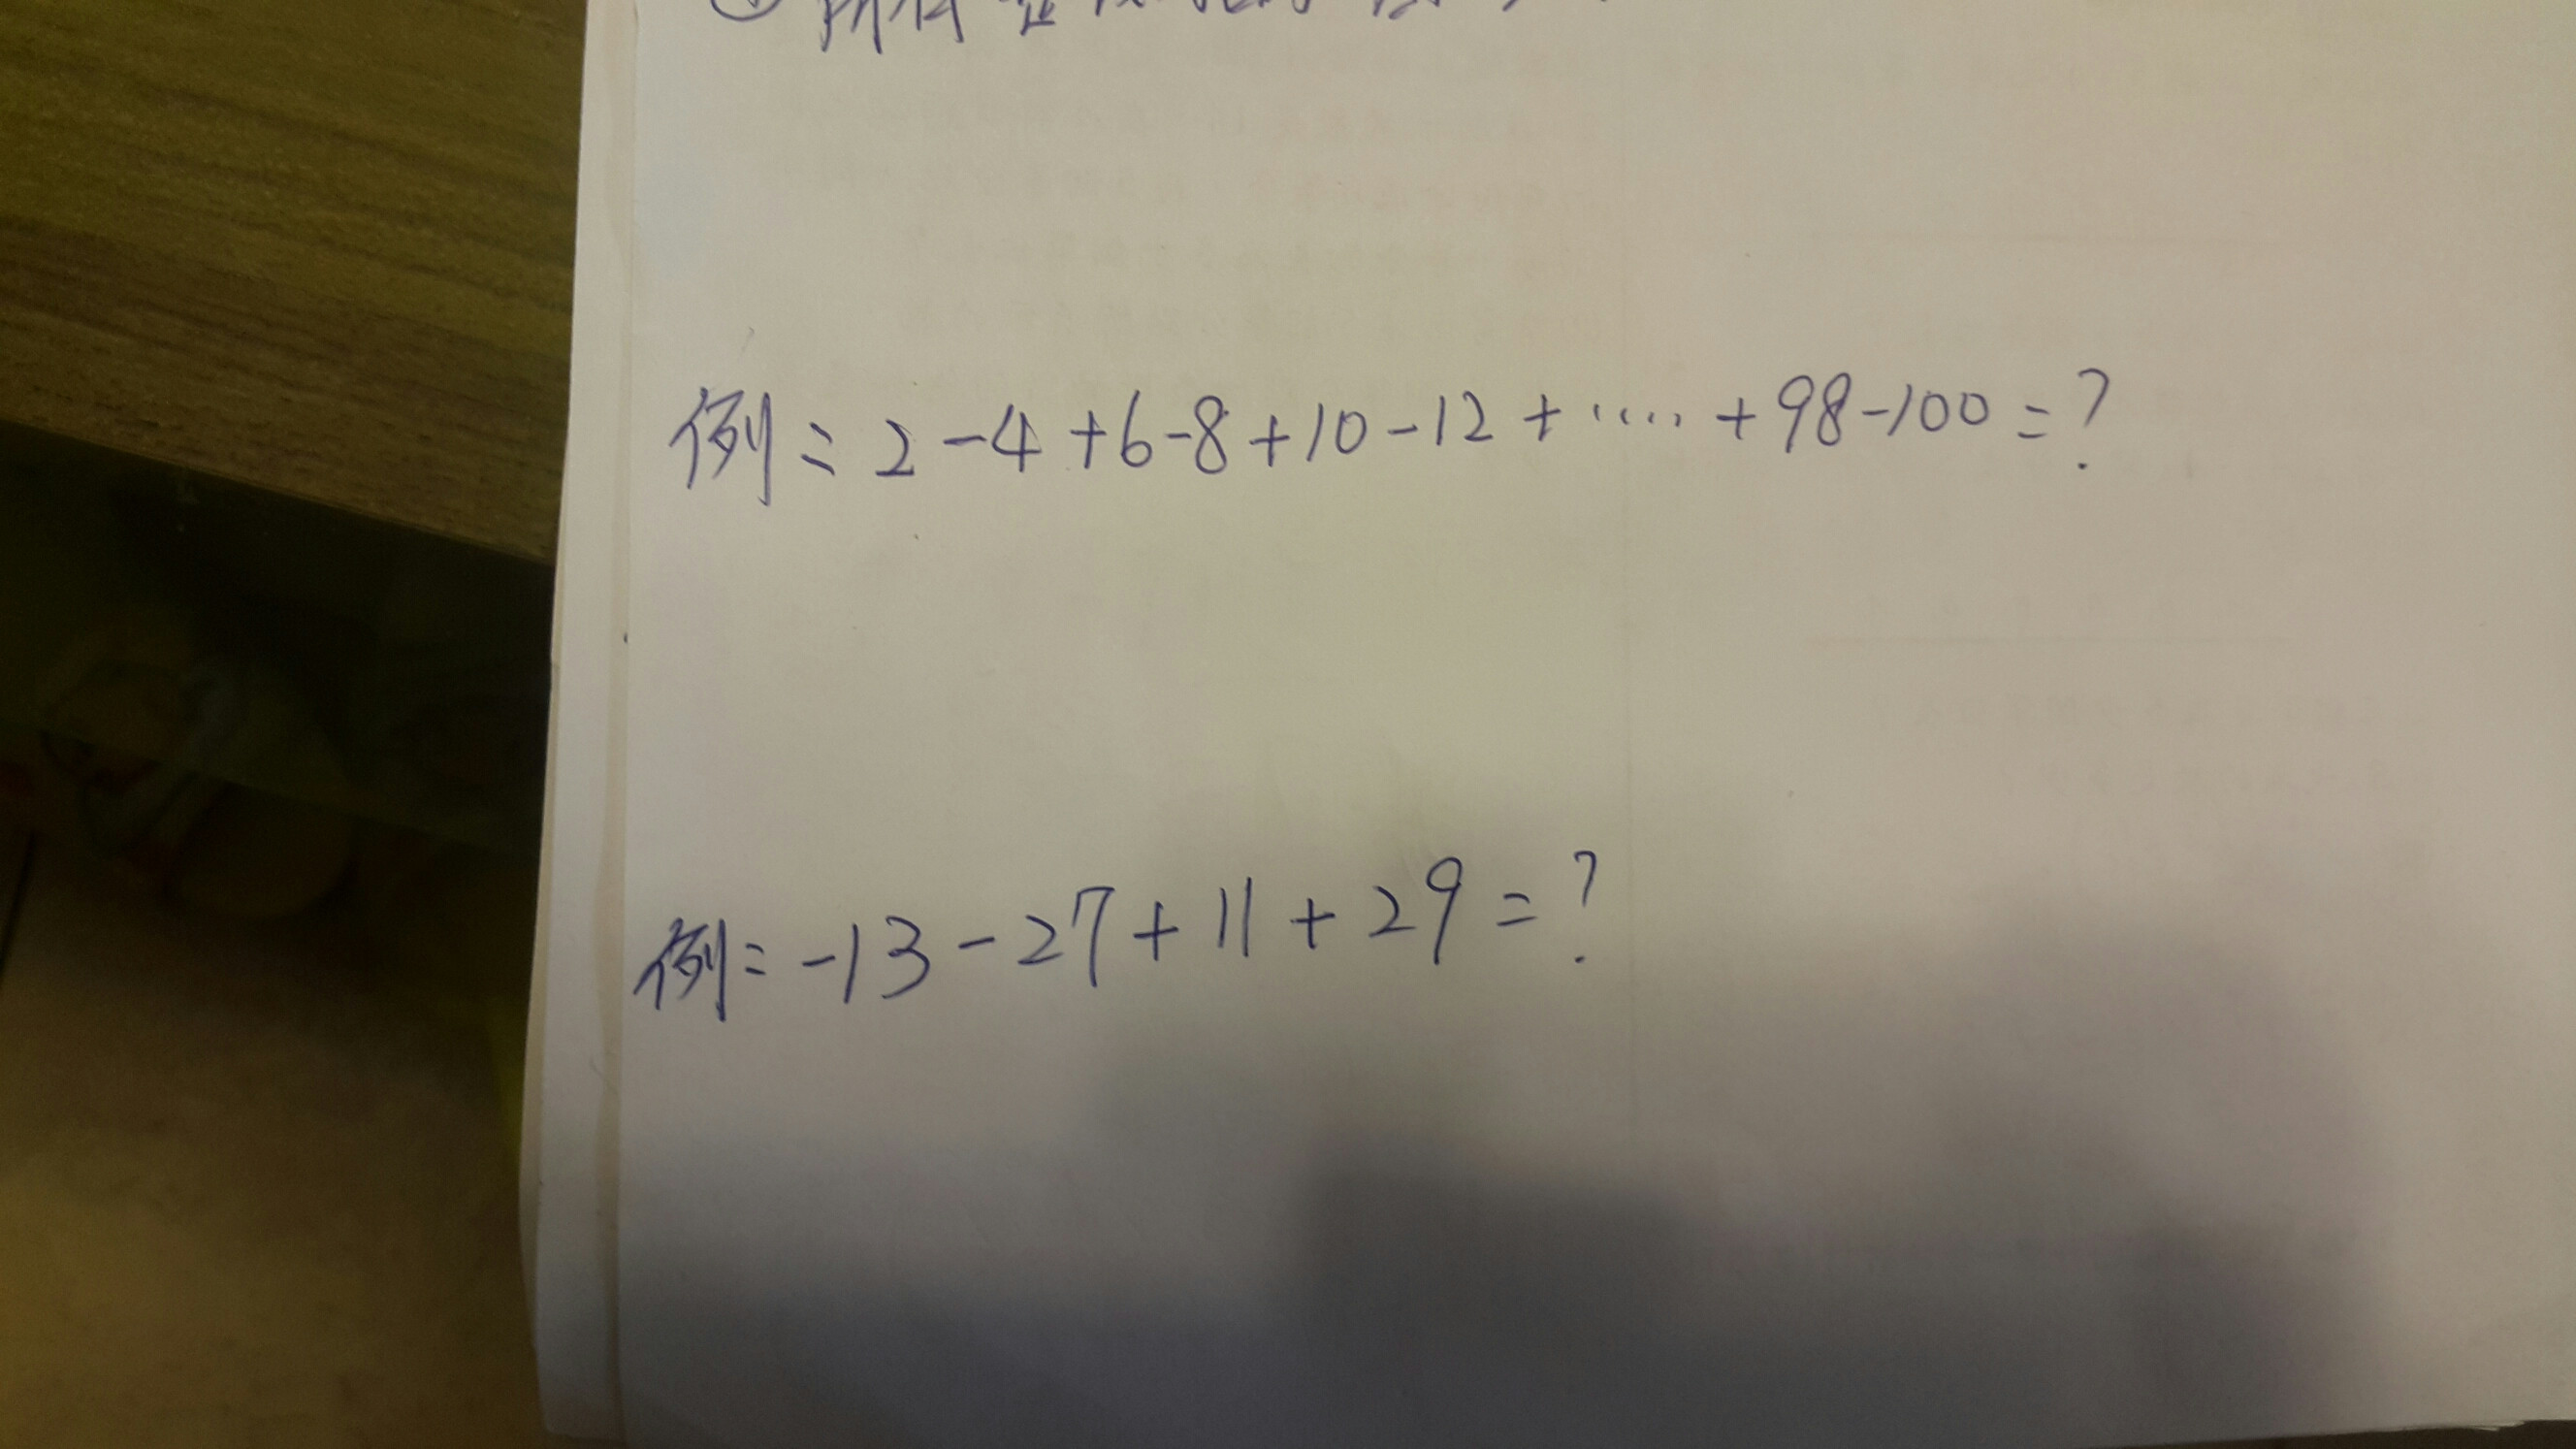 例: 2-4+6-8+10-12+‥‥+98-100=?
例: -13-27+11+29=?